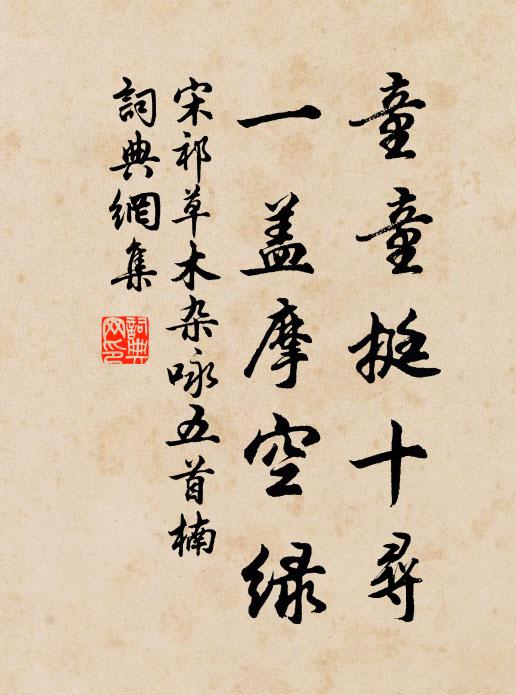 童童挺十尋
一盖摩空绿
宋祁草木杂咏五首楠
詞典網集
詞典
网印